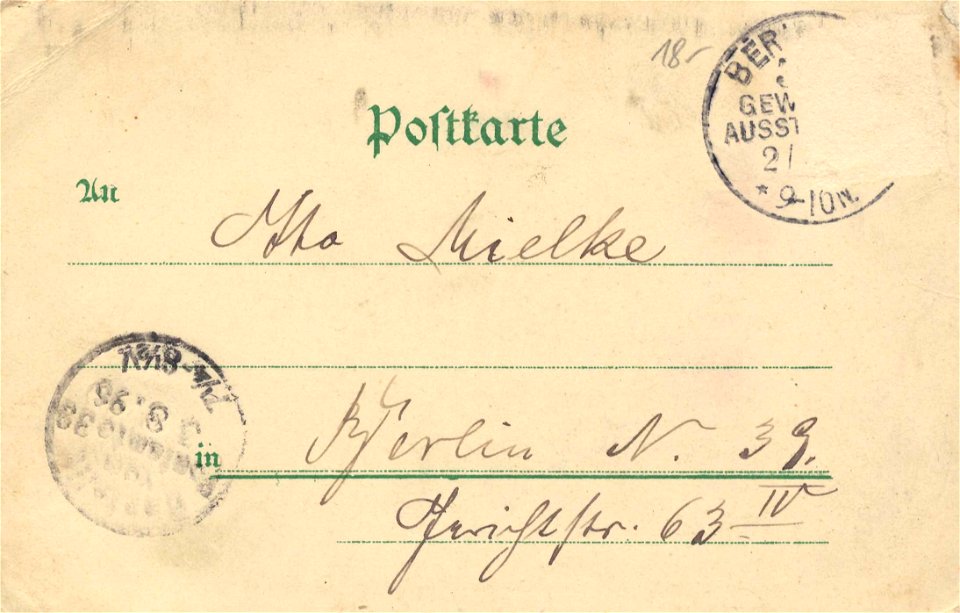 18-
BER
GEW
AUSST
2/
* 9-10N.
Postkarte
An
Otto Mielke
in Berlin N. 39.
Gerichtstr. 63 IV